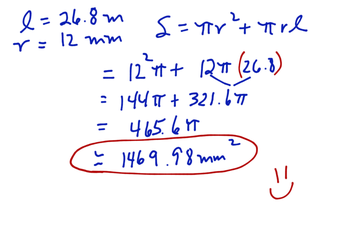 l = 26.8 m
r = 12 mm
S = πr² + πrl
= 12²π + 12π(26.8)
= 144π + 321.6π
= 465.6π
≃ 1469.98 mm²